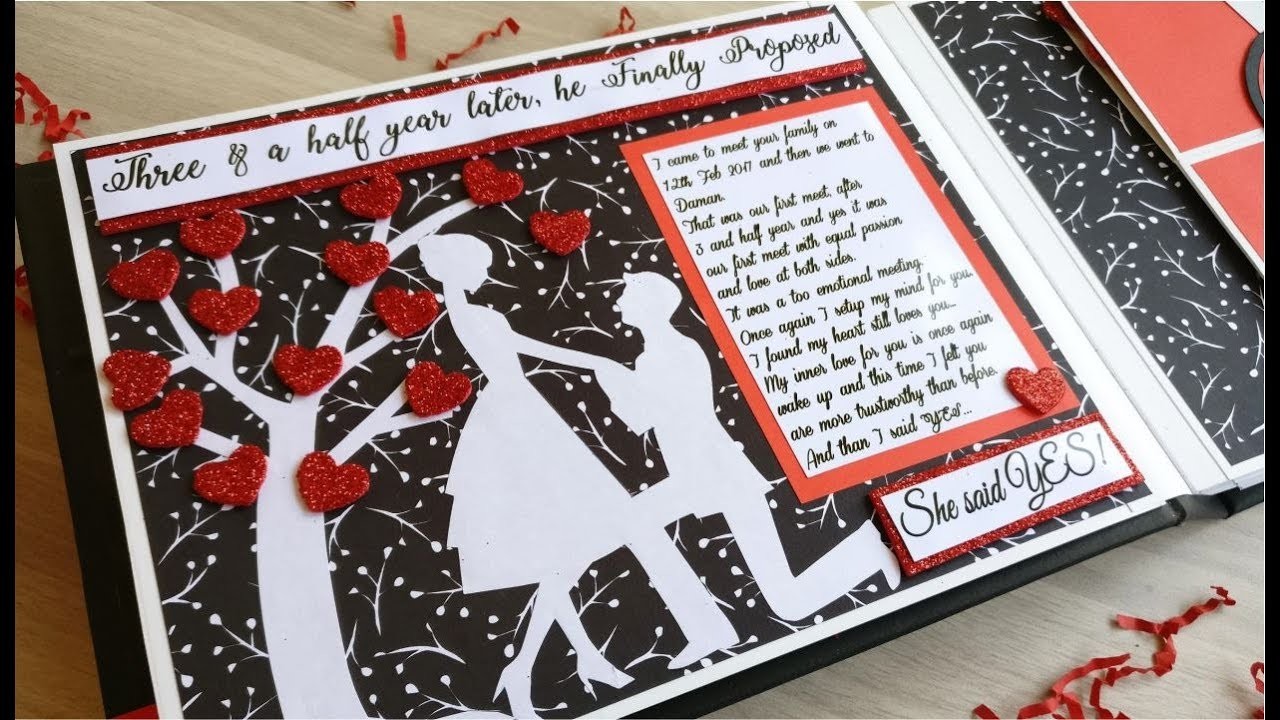 Three & a half year later, he Finally Proposed
I came to meet your family on
12th Feb 2017 and then we went to
Daman.
That was our first meet, after
3 and half year and yes it was
our first meet with equal passion
and love at both sides.
It was a too emotional meeting.
Once again I setup my mind for you.
I found my heart still loves you...
My inner love for you is once again
wake up and this time I felt you
are more trustworthy than before.
And than I said YES...
She said YES!